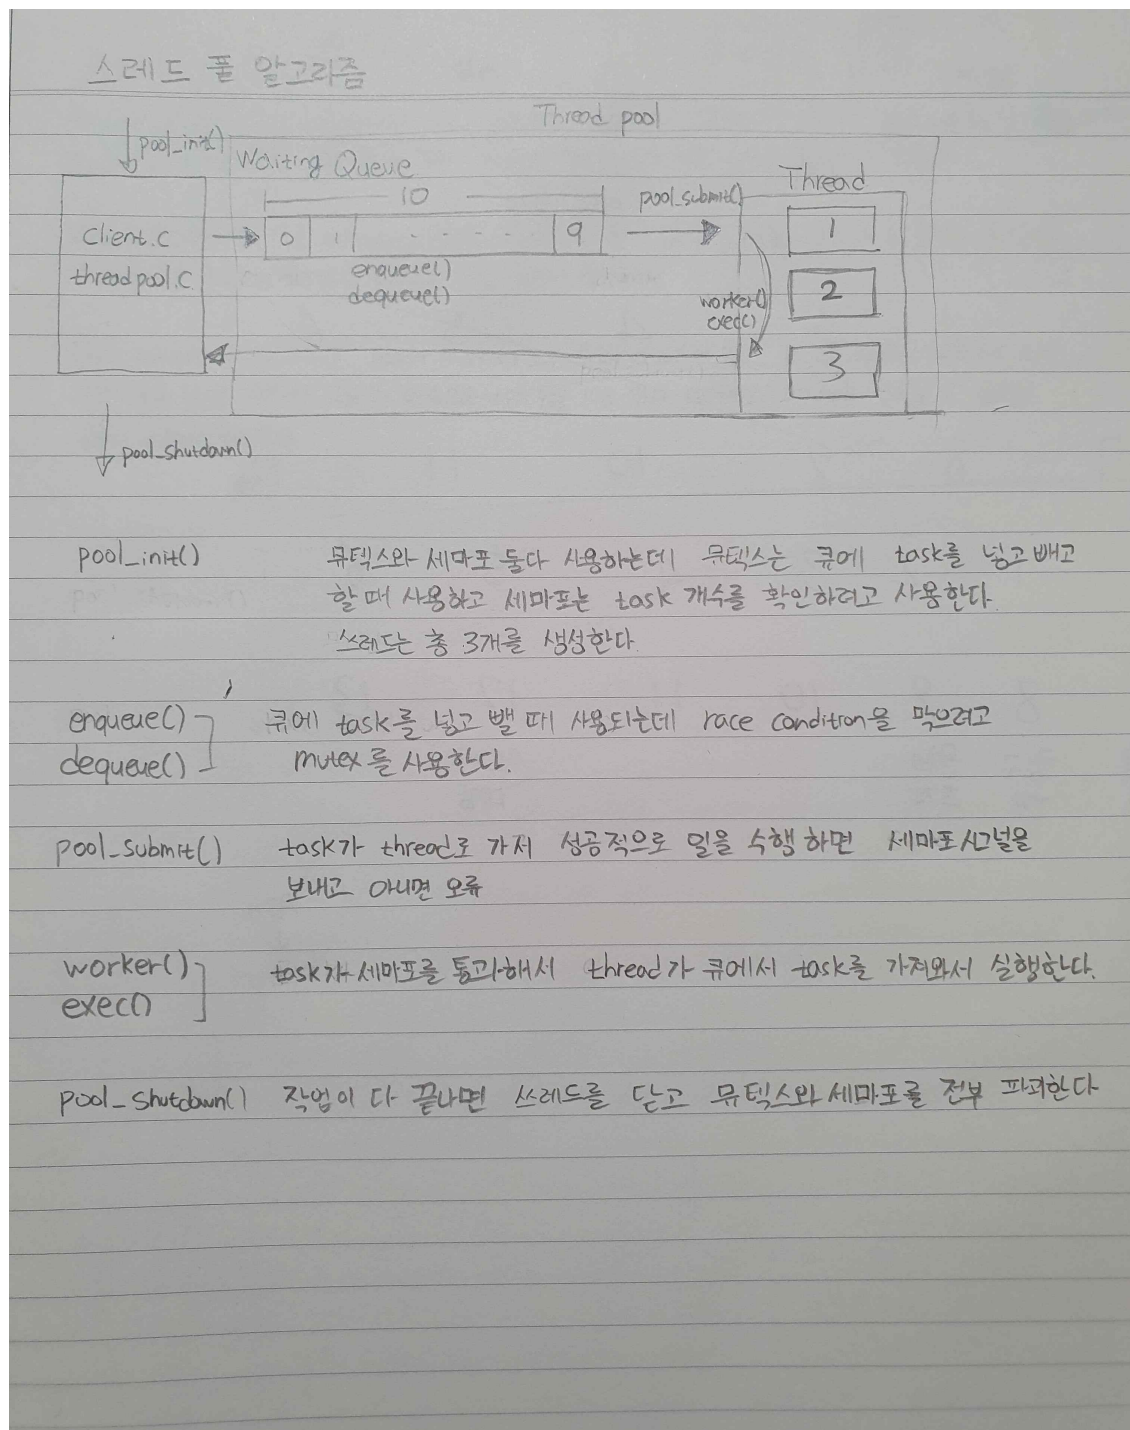 스레드 풀 알고리즘
Thread pool
pool_init()
Waiting Queue
10
pool_submit()
Thread
client.c
threadpool.c
0 1 - - - - - 9
enqueue()
dequeue()
worker()
exec()
1
2
3
pool_shutdown()
pool_init() 뮤텍스와 세마포 둘다 사용하는데 뮤텍스는 큐에 task를 넣고 빼고
할 때 사용하고 세마포는 task 개수를 확인하려고 사용한다.
쓰레드는 총 3개를 생성한다.
enqueue() 큐에 task를 넣고 뺄 때 사용되는데 race condition을 막으려고
dequeue() mutex를 사용한다.
pool_submit() task가 thread로 가져 성공적으로 일을 수행하면 세마포 시그널을
보내고 아니면 오류
worker() task가 세마포를 통과해서 thread가 큐에서 task를 가져와서 실행한다.
exec()
pool_shutdown() 작업이 다 끝나면 쓰레드를 닫고 뮤텍스와 세마포를 전부 파괴한다